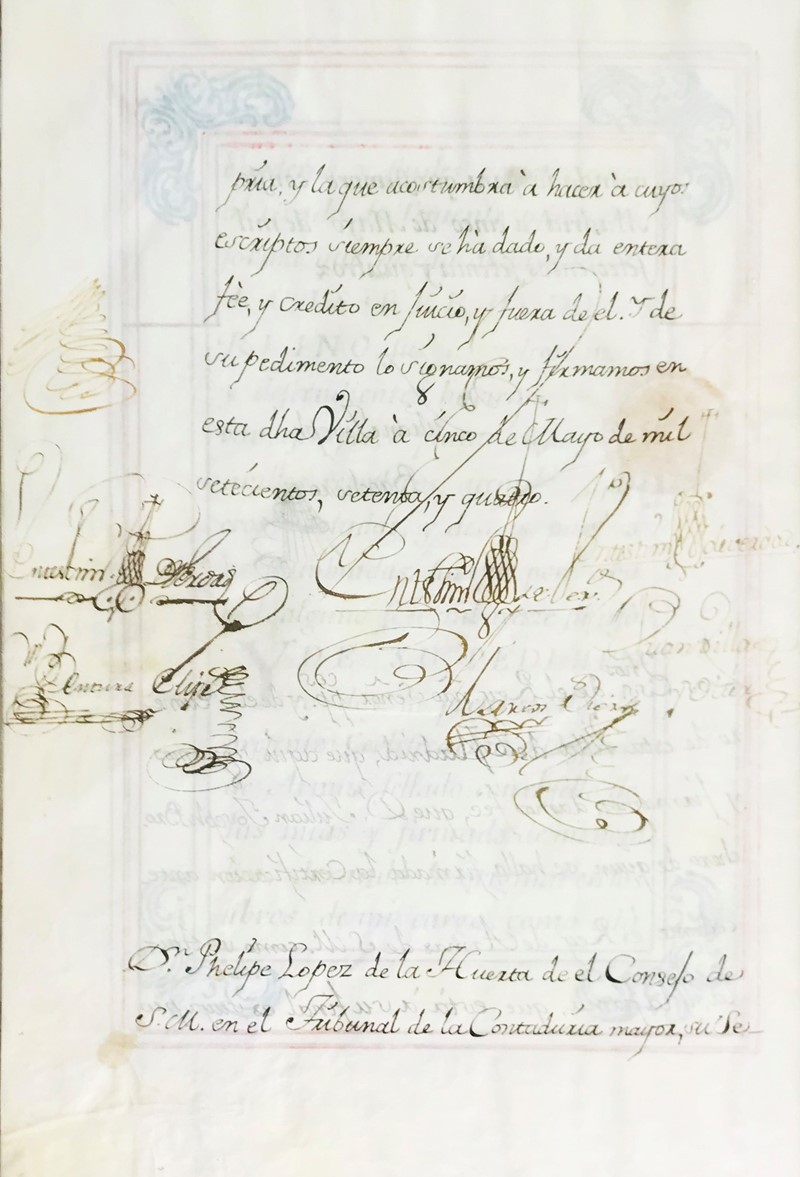 pria, y la que acostumbra à hacer à cuyos
escriptos siempre se hà dado, y dà entera
feè, y credito en Juicio, y fuera de el. Y de
su pedimento lo signamos, y firmamos en
esta dha Villa à cinco de Mayo de mil
setecientos, setenta, y quatro.
En testim.
En testim
Ventura Elipe
Marcos
D.n Phelipe Lopez de la Huerta de el Consejo de
S.M. en el Tribunal de la Contaduria mayor, su Se